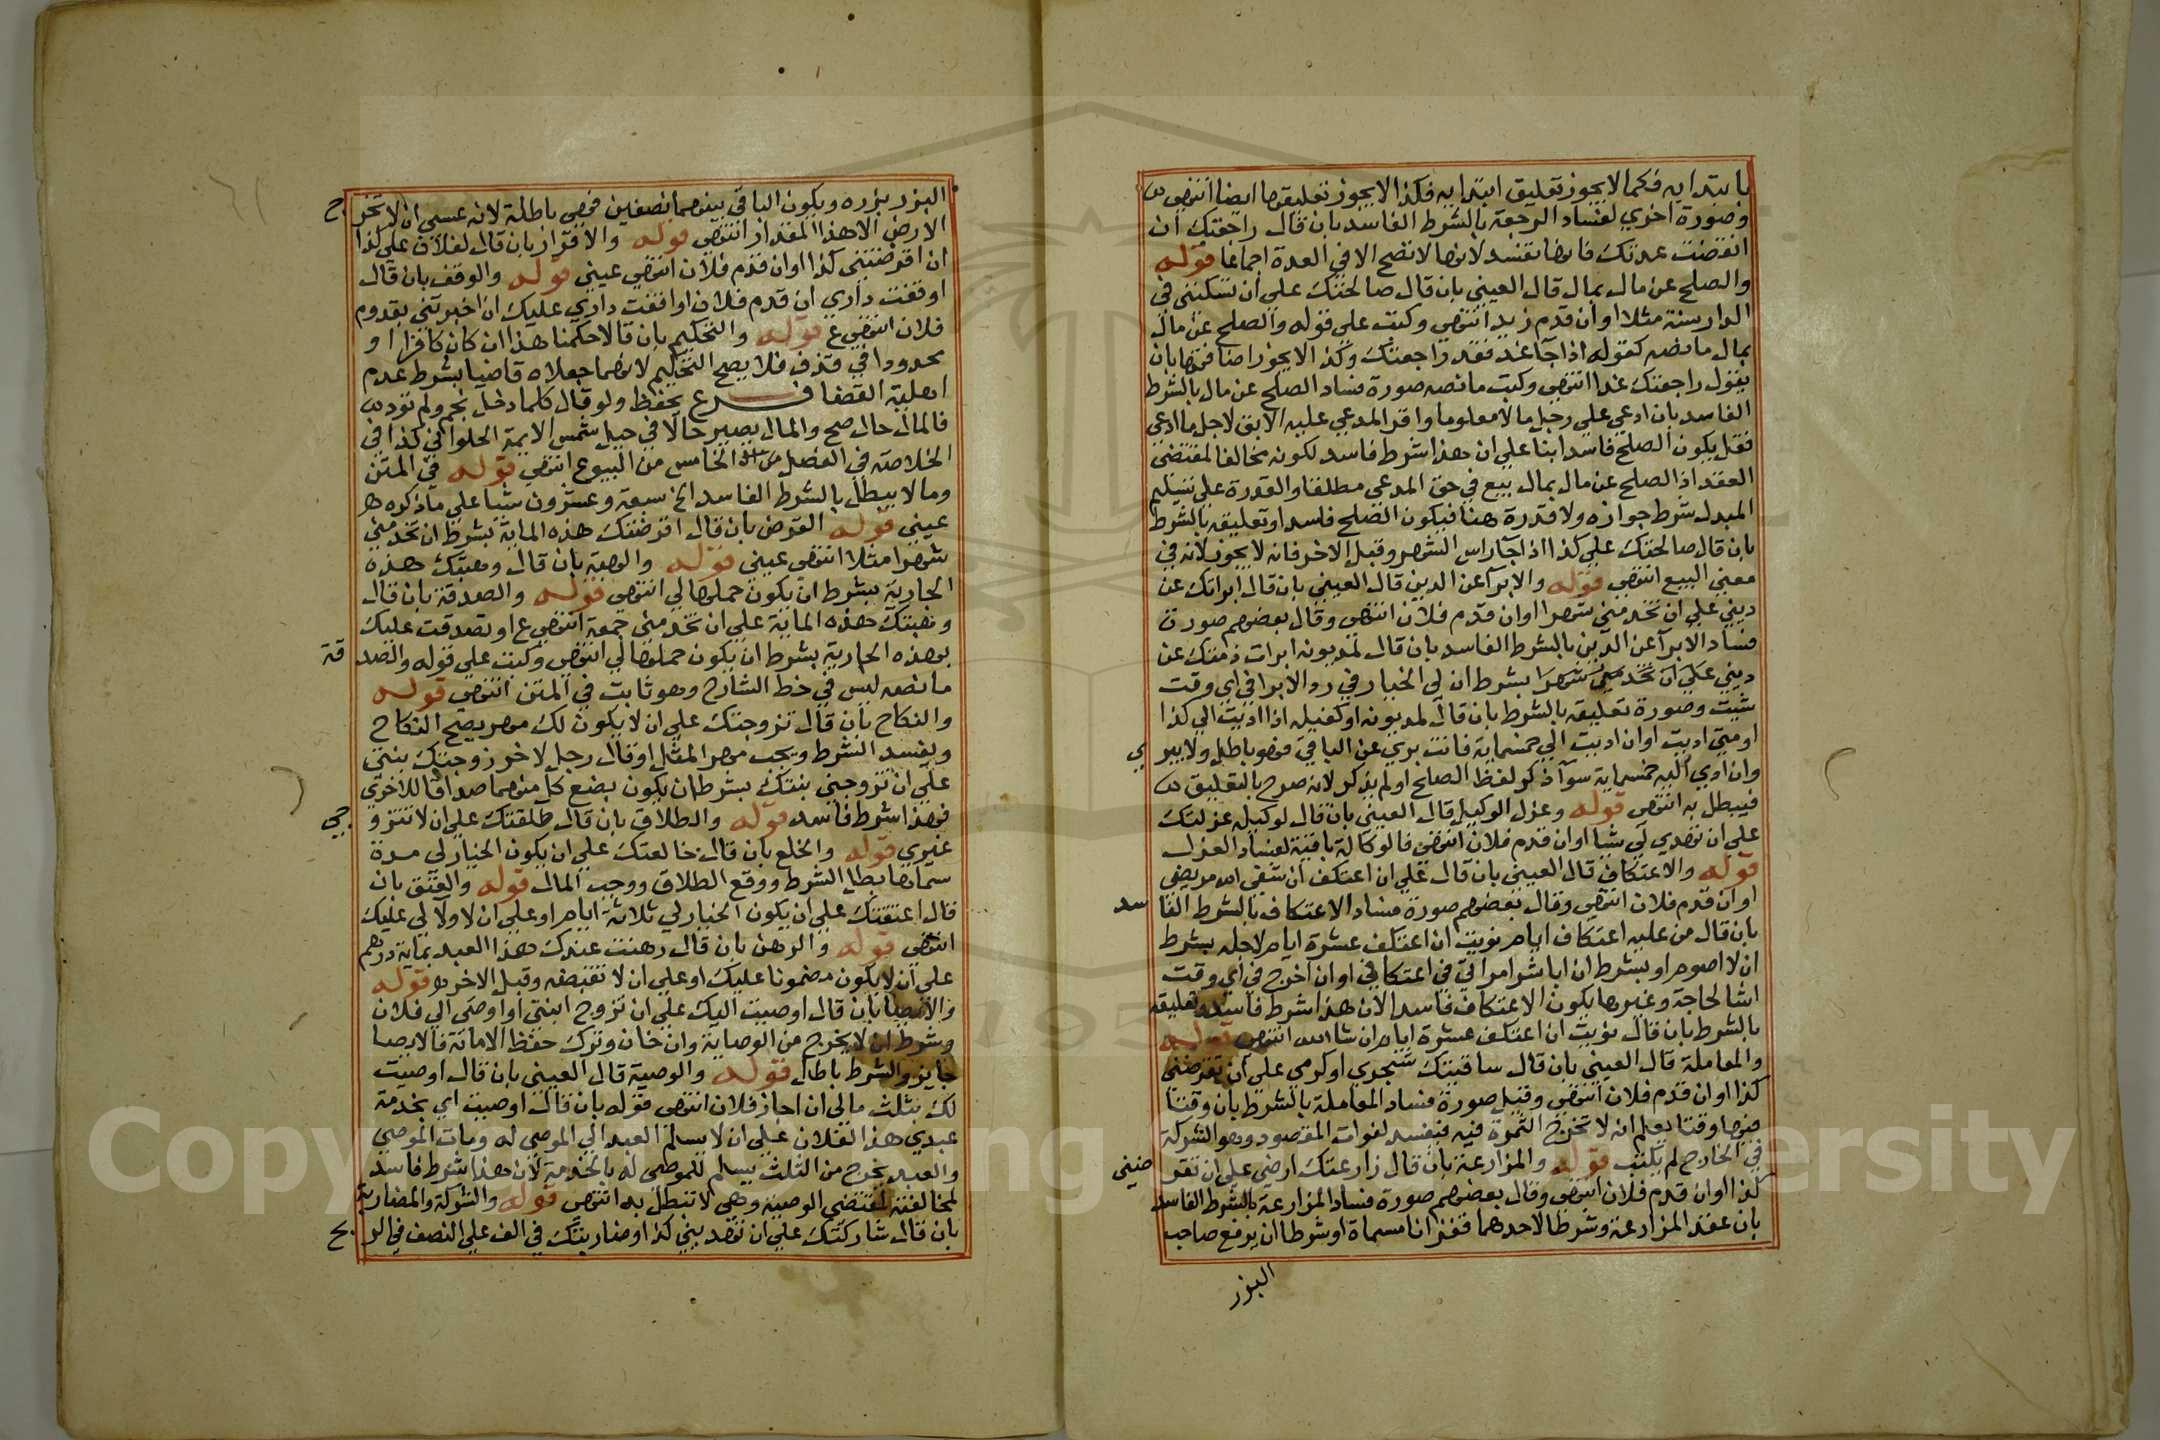 بابتدايه فكما لا يجوز تعليق ابتدايه فكذا لا يجوز تعليقها ايضا انتهى س
وصورة اخرى لفساد الرجعة بالشرط الفاسد بان قال راجعتك ان
انقضت عدتك فانها تفسد لانها لا تصح الا في العدة اجماعا قوله
والصلح عن مال بمال قال العيني بان قال صالحتك على ان تسكنني في
الدار سنة مثلا او ان قدم زيد انتهى وكتب على قوله والصلح عن مال
بمال ما نصه كقوله اذا جا غد فقد راجعتك وكذا لا يجوز اضافتها بان
يقول راجعتك غدا انتهى وكتب ما نصه صورة فساد الصلح عن مال بالشرط
الفاسد بان ادعى على رجل مالا معلوما واقر المدعي عليه الابق لاجل ما ادعى
فقل يكون الصلح فاسدا بنا على ان هذا شرط فاسد لكونه مخالفا لمقتضى
العقد اذ الصلح عن مال بمال بيع في حق المدعي مطلقا والقدرة على تسليم
المبدل شرط جوازه ولا قدرة هنا فيكون الصلح فاسدا وتعليقه بالشرط
بان قال صالحتك على كذا اذا جا راس الشهر وقبل الاخر فانه لا يجوز لانه في
معنى البيع انتهى قوله والابرا عن الدين قال العيني بان قال ابراتك عن
ديني على ان تخدمني شهرا او ان قدم فلان انتهى وقال بعضهم صورة
فساد الابرا عن الدين بالشرط الفاسد بان قال لمديونه ابرات ذمتك عن
ديني على ان تخدمني شهرا بشرط ان لي الخيار في رد الابرا في اي وقت
شيت وصورة تعليقه بالشرط بان قال لمديونه او كفيله اذا اديت الي كذا
او متى اديت او ان اديت الي خمسماية فانت بري عن الباقي فهو باطل ولا يبر
ي
وان ادى اليه خمسماية سوا ذكر لفظ الصلح او لم يذكر لانه صرح بالتعليق
فيبطل به انتهى قوله وعزل الوكيل قال العيني بان قال لوكيله عزلتك
على ان تهدي لي شيا او ان قدم فلان انتهى فالوكالة باقية لفساد العزل
قوله والاعتكاف قال العيني بان قال علي ان اعتكف ان شفى الله مريضي
او ان قدم فلان انتهى وقال بعضهم صورة فساد الاعتكاف بالشرط الفا
سد
بان قال من عليه اعتكاف ايام نويت ان اعتكف عشرة ايام لاجله بشرط
ان لا اصوم او بشرط ان اباشر امراتي في اعتكافي او ان اخرج في اي وقت
اشا لحاجة وغيرها يكون الاعتكاف فاسدا لان هذا شرط فاسد وتعليقه
بالشرط بان قال نويت ان اعتكف عشرة ايام ان شا الله انتهى قوله
والمعاملة قال العيني بان قال ساقيتك شجري او كرمي على ان تقرضني
كذا او ان قدم فلان انتهى وقيل صورة فساد المعاملة بالشرط بان وقتا
فيها وقتا يعلم انه لا تخرج الثمرة فيه فيفسد لفوات المقصود وهو الشركة
في الخارج لم يكتب قوله والمزارعة بان قال زارعتك ارضي على ان تقر
ضني
كذا او ان قدم فلان انتهى وقال بعضهم صورة فساد المزارعة بالشرط الفاسد
بان عقد المزارعة وشرطا لاحدهما قفزانا مسماة او شرطا ان يرفع صاحب
البزر
البزر بزره ويكون الباقي بينهما نصفين فهي باطلة لانه عسى ان لا تخر
ج
الارض الا هذا المقدار انتهى قوله والاقرار بان قال لفلان علي كذا
ان اقرضتني كذا او ان قدم فلان انتهى عيني قوله والوقف بان قال
اوقفت داري ان قدم فلان او اوقفت داري عليك ان اخبرتني بقدوم
فلان انتهى ع قوله والتحكيم بان قالا حكمنا هذا ان كان كافرا او
محدودا في قذف فلا يصح التحكيم لانهما جعلاه قاضيا بشرط عدم
اهلية القضا فرع يحفظ ولو قال كلما دخل نجم ولم تود
فالمال حال صح والمال يصير حالا في حيل شمس الايمة الحلواني كذا في
الخلاصة في الفصل الخامس من البيوع انتهى قوله في المتن
وما لا يبطل بالشرط الفاسد الخ سبعة وعشرون شيا على ما ذكره ه
عيني قوله القرض بان قال اقرضتك هذه الماية بشرط ان تخدمني
شهرا مثلا انتهى عيني قوله والهبة بان قال وهبتك هذه
الجارية بشرط ان يكون حملها لي انتهى قوله والصدقة بان قال
وهبتك هذه الماية على ان تخدمني جمعة انتهى ع او تصدقت عليك
بهذه الجارية بشرط ان يكون حملها لي انتهى وكتب على قوله والصد
قة
ما نصه ليس في خط الشارح وهو ثابت في المتن انتهى قوله
والنكاح بان قال تزوجتك على ان لا يكون لك مهر يصح النكاح
ويفسد الشرط ويجب مهر المثل او قال رجل لاخر زوجتك بنتي
على ان تزوجني بنتك بشرط ان يكون بضع كل منهما صداقا للاخرى
فهذا شرط فاسد قوله والطلاق بان قال طلقتك على ان لا تتزو
جي
غيري قوله والخلع بان قال خالعتك على ان يكون الخيار لي مدة
سماها بطل الشرط ووقع الطلاق ووجب المال قوله والعتق بان
قال اعتقتك على ان يكون الخيار لي ثلاثة ايام او على ان لا ولا لي عليك
انتهى قوله والرهن بان قال رهنت عندك هذا العبد بماية درهم
على ان لا يكون مضمونا عليك او على ان لا تقبضه وقبل الاخر قوله
والايصا بان قال اوصيت اليك على ان تزوج ابنتي او اوصى الى فلان
وشرط ان لا يخرج من الوصاية وان خان وترك حفظ الامانة فالايصا
جايز والشرط باطل قوله والوصية قال العيني بان قال اوصيت
لك بثلث مالي ان اجاز فلان انتهى قوله بان قال اوصيت اي بخدمة
عبدي هذا لفلان على ان لا يسلم العبد الى الموصى له ومات الموصي
والعبد يخرج من الثلث يسلم للموصى له بالخدمة لان هذا شرط فاسد
لمخالفته لمقتضى الوصية وهي لا تبطل به انتهى قوله والشركة والمضاربة
بان قال شاركتك على ان تهديني كذا او ضاربتك في الف على النصف في الر
بح